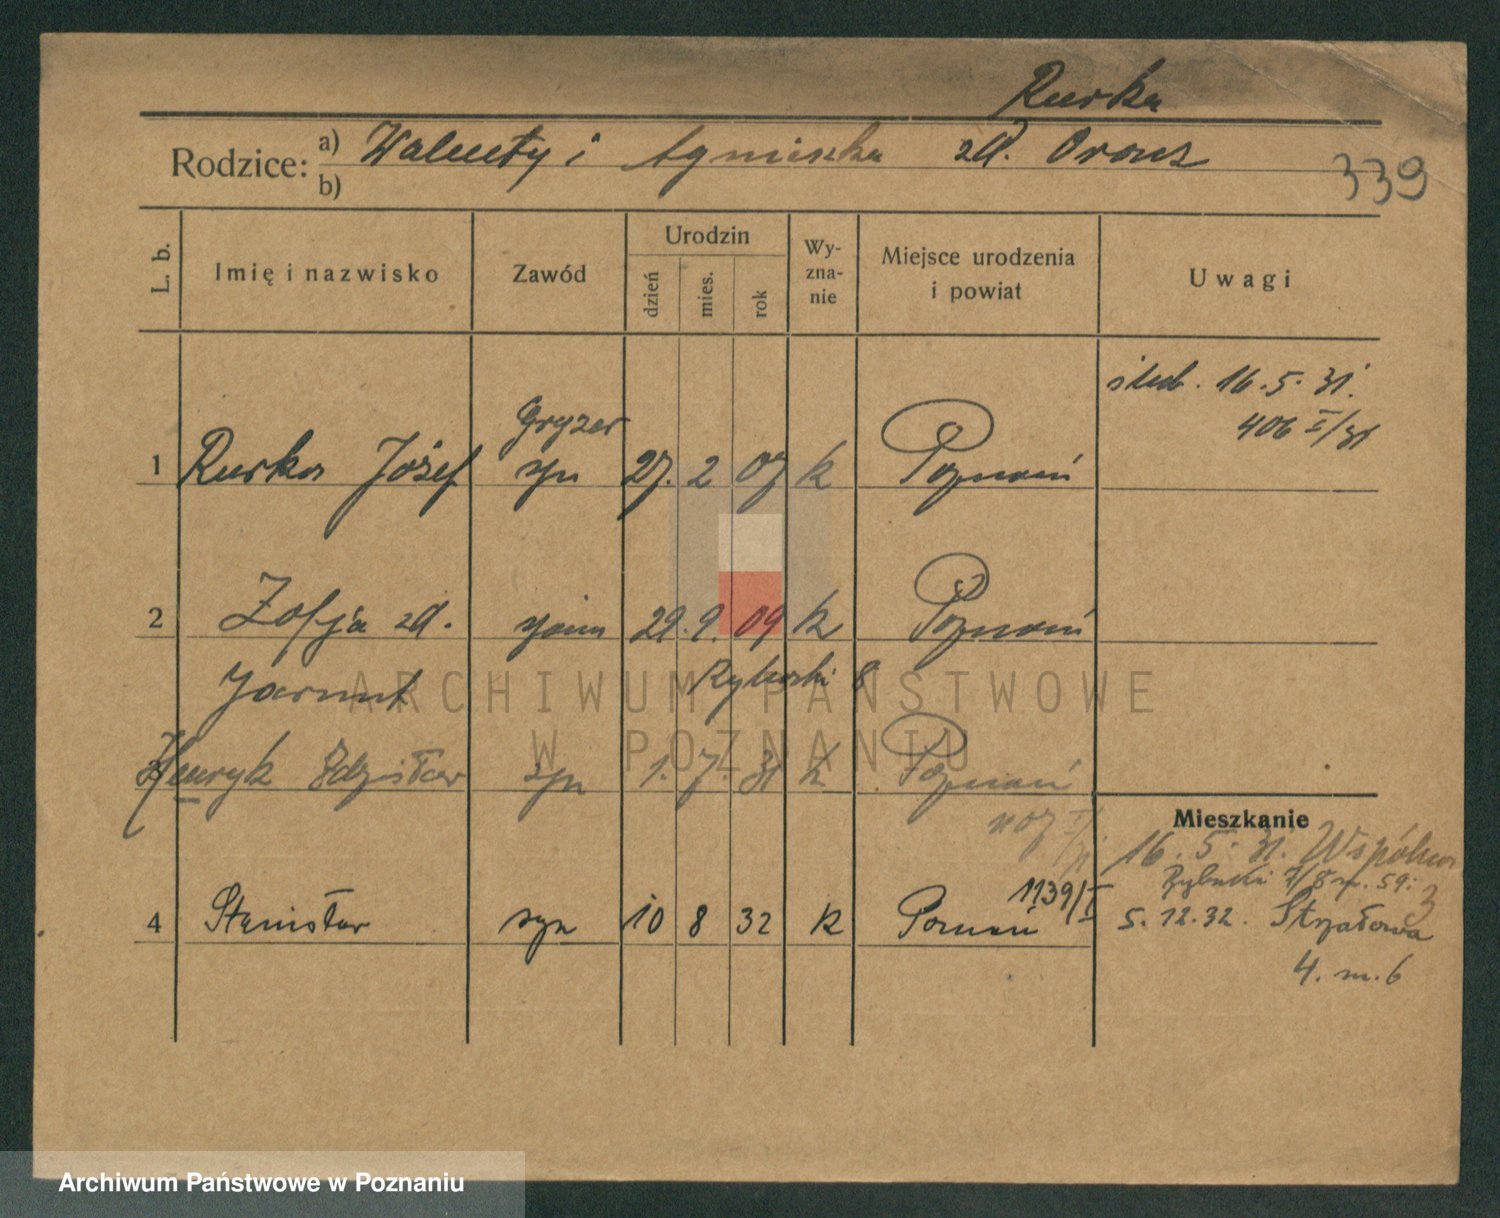 Rurka
Rodzice: a) Walenty i Agnieszka zd. Oronz
b)
339
L. b.
Imię i nazwisko
Zawód
Urodzin
dzień
mies.
rok
Wy-
zna-
nie
Miejsce urodzenia
i powiat
Uwagi
ślub. 16.5.31.
406 I/31
Gryzer
1 Rurka Józef syn 27. 2 07 k Poznań
2 Zofja zd. żona 29. 9. 09 k Poznań
Jarmut Rybaki 8
3 Henryk Zdzisław syn 1. 7. 31 k Poznań
Mieszkanie
16. 5. 31. Wspólna
Rybaki 7/8 m. 59.
1139/I
4 Stanisław syn 10 8 32 k Poznań
5. 12. 32. Strzałowa
4. m. 6
ARCHIWUM PAŃSTWOWE
W POZNANIU
Archiwum Państwowe w Poznaniu